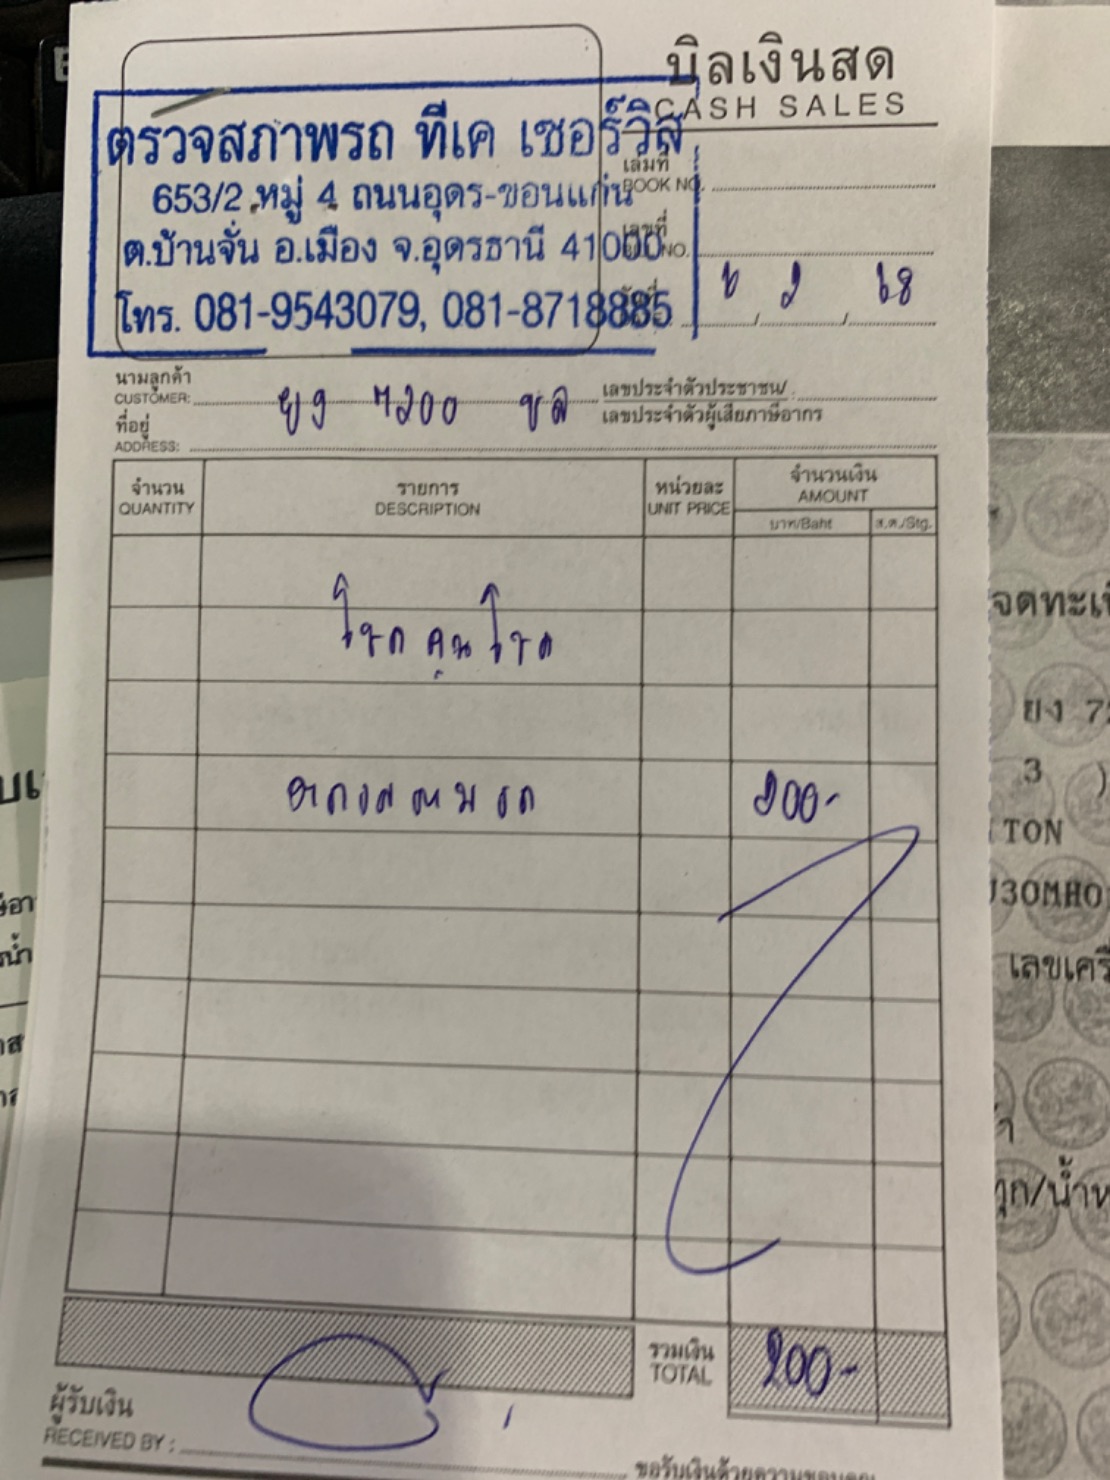 บิลเงินสด
CASH SALES
ตรวจสภาพรถ ทีเค เซอร์วิส
653/2 หมู่ 4 ถนนอุดร-ขอนแก่น
ต.บ้านจั่น อ.เมือง จ.อุดรธานี 41000
โทร. 081-9543079, 081-8718885
เล่มที่
BOOK NO.
เลขที่
NO.
6 / 2 / 68
นามลูกค้า
CUSTOMER: ยง 7200 ชล
เลขประจำตัวประชาชน/
เลขประจำตัวผู้เสียภาษีอากร
ที่อยู่
ADDRESS:
จำนวน รายการ หน่วยละ จำนวนเงิน
QUANTITY DESCRIPTION UNIT PRICE AMOUNT
บาท/Baht ส.ต./Stg.
โชคคูนโชค
ตรวจสภาพรถ 200-
รวมเงิน
TOTAL 200-
ผู้รับเงิน
RECEIVED BY :
ขอรับเงินด้วยความขอบคุณ
จดทะเ
ยง 72
3 )
TON
J30MHO
เลขเครื
ทุก/น้ำห